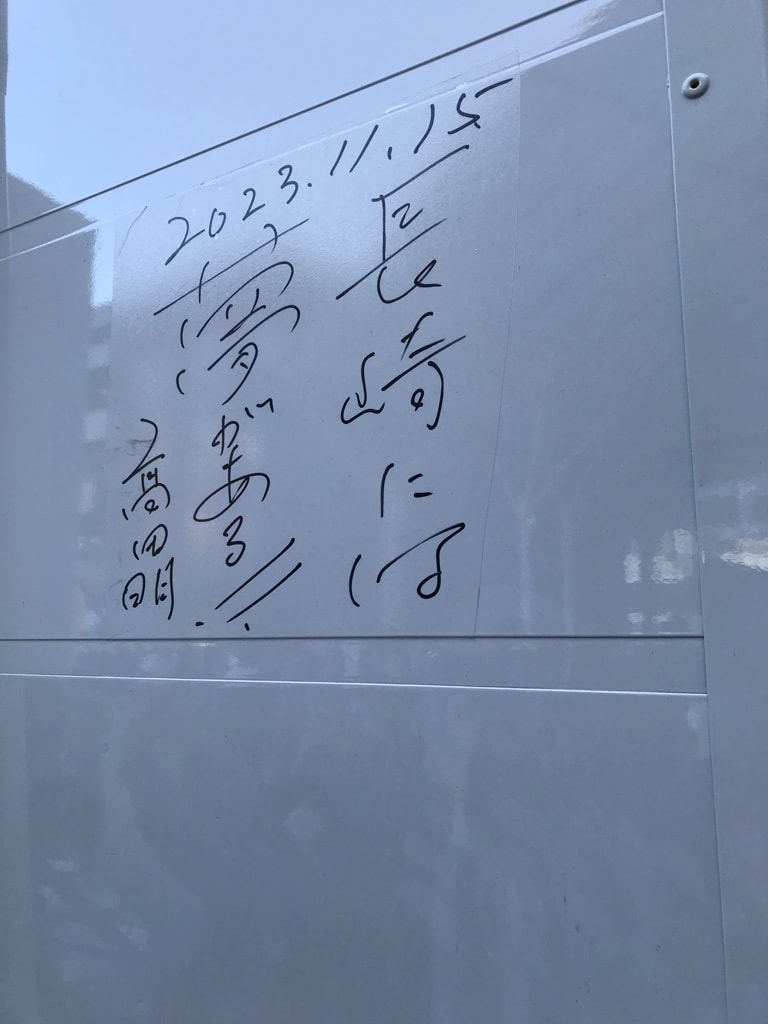 2023.11.15
長崎には
夢がある!!
高田明